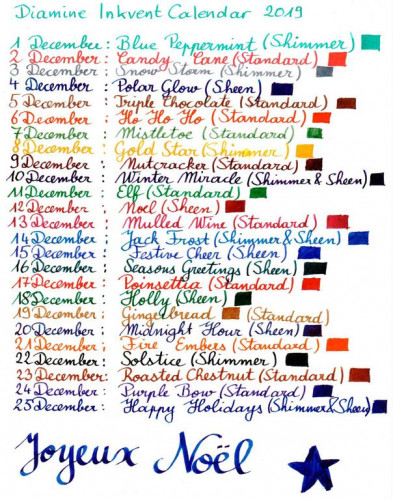 Diamine Inkvent Calendar 2019
1 December: Blue Peppermint (Shimmer)
2 December: Candy Cane (Standard)
3 December: Snow Storm (Shimmer)
4 December: Polar Glow (Sheen)
5 December: Triple Chocolate (Standard)
6 December: Ho Ho Ho (Standard)
7 December: Mistletoe (Standard)
8 December: Gold Star (Shimmer)
9 December: Nutcracker (Standard)
10 December: Winter Miracle (Shimmer & Sheen)
11 December: Elf (Standard)
12 December: Noel (Sheen)
13 December: Mulled Wine (Standard)
14 December: Jack Frost (Shimmer & Sheen)
15 December: Festive Cheer (Sheen)
16 December: Seasons Greetings (Sheen)
17 December: Poinsettia (Standard)
18 December: Holly (Sheen)
19 December: Gingerbread (Standard)
20 December: Midnight Hour (Sheen)
21 December: Fire Embers (Standard)
22 December: Solstice (Shimmer)
23 December: Roasted Chestnut (Standard)
24 December: Purple Bow (Standard)
25 December: Happy Holidays (Shimmer & Sheen)
Joyeux Noël